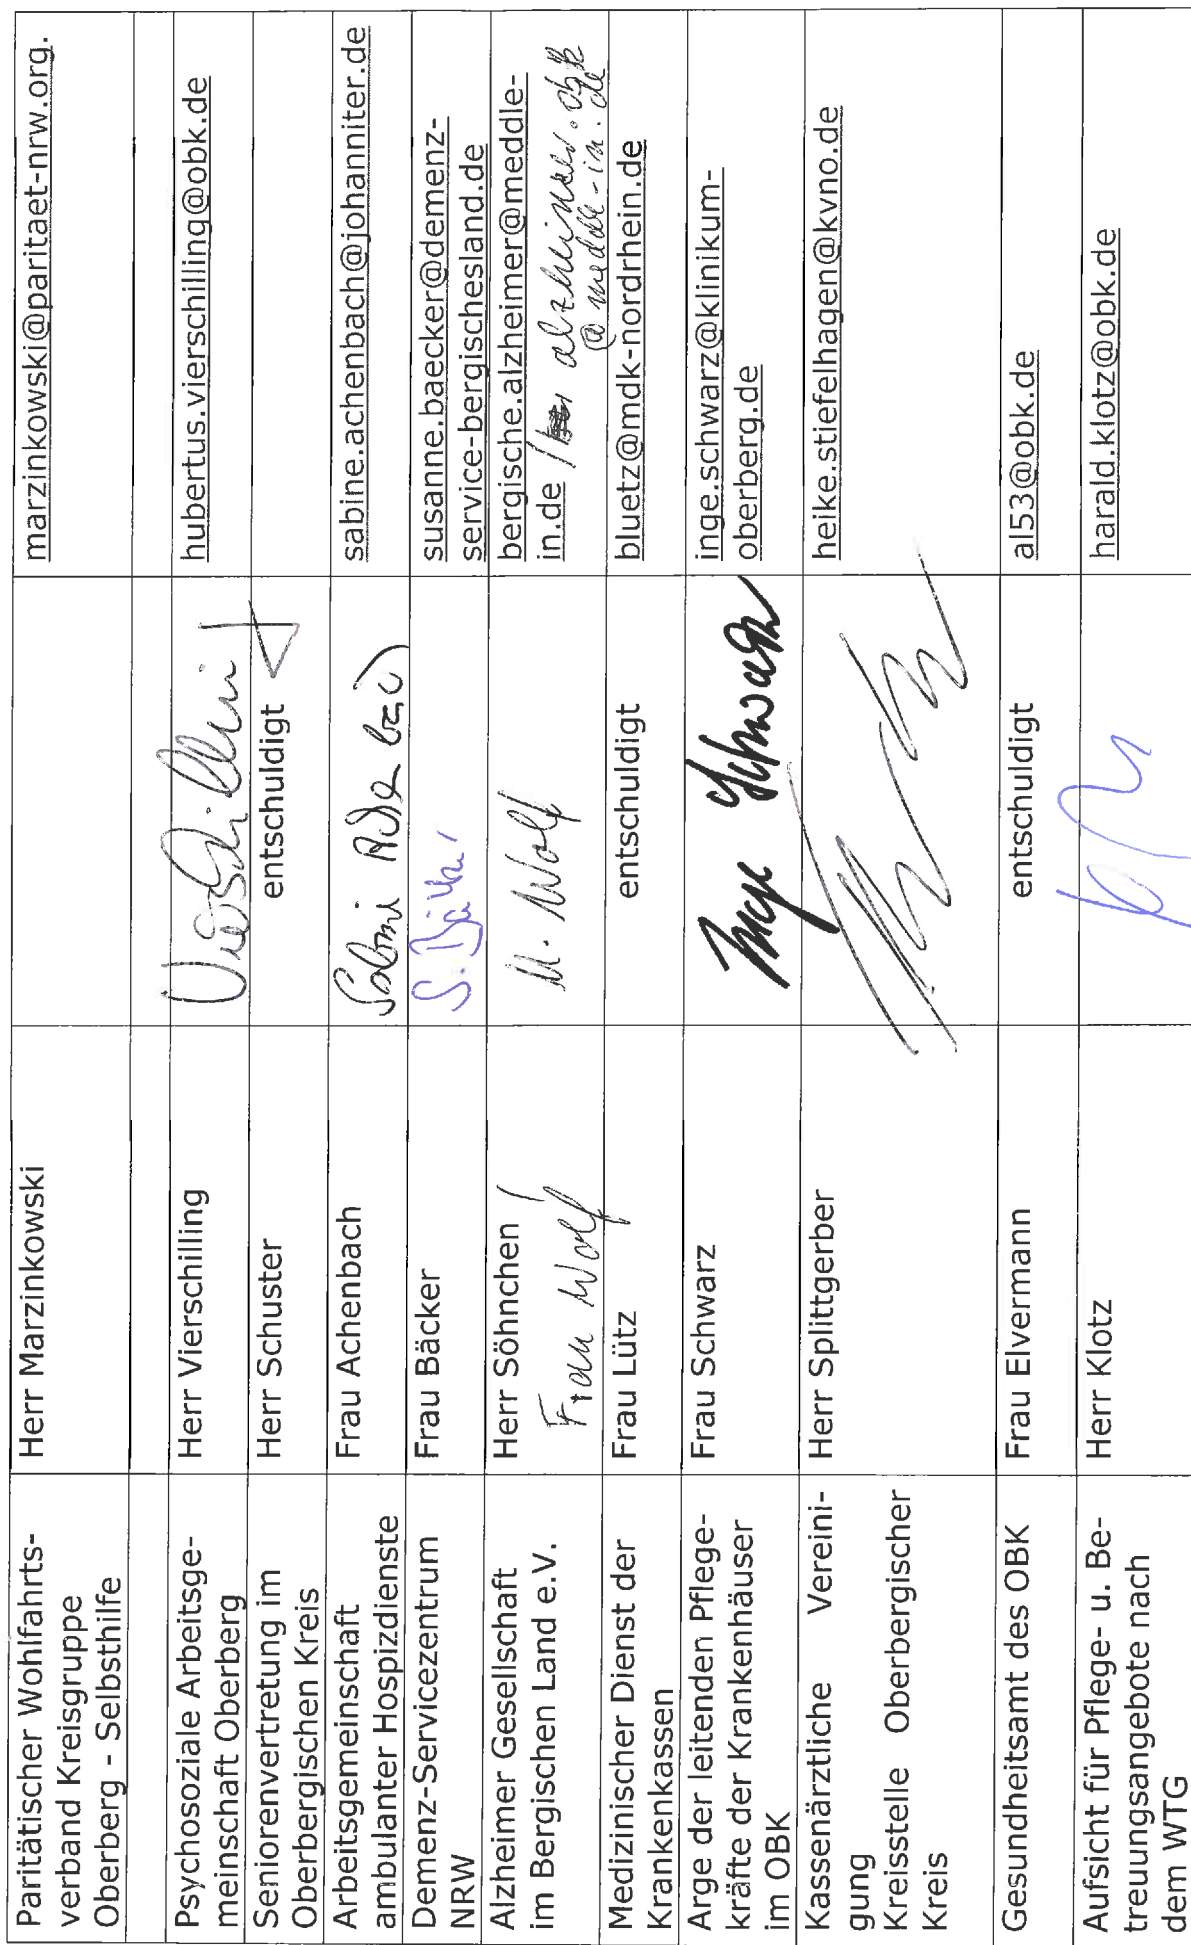 Paritätischer Wohlfahrts-
verband Kreisgruppe
Oberberg - Selbsthilfe
Herr Marzinkowski
marzinkowski@paritaet-nrw.org.
Psychosoziale Arbeitsge-
meinschaft Oberberg
Herr Vierschilling
Vierschilling
hubertus.vierschilling@obk.de
Seniorenvertretung im
Oberbergischen Kreis
Herr Schuster
entschuldigt
Arbeitsgemeinschaft
ambulanter Hospizdienste
Frau Achenbach
sabine.achenbach@johanniter.de
Demenz-Servicezentrum
NRW
Frau Bäcker
S. Bäcker
susanne.baecker@demenz-
service-bergischesland.de
Alzheimer Gesellschaft
im Bergischen Land e.V.
Herr Söhnchen /
Frau Wolf
M. Wolf
bergische.alzheimer@meddle-
in.de / alzheimer.obk
@meddle-in.de
Medizinischer Dienst der
Krankenkassen
Frau Lütz
entschuldigt
bluetz@mdk-nordrhein.de
Arge der leitenden Pflege-
kräfte der Krankenhäuser
im OBK
Frau Schwarz
Inge Schwarz
inge.schwarz@klinikum-
oberberg.de
Kassenärztliche Vereini-
gung
Kreisstelle Oberbergischer
Kreis
Herr Splittgerber
heike.stiefelhagen@kvno.de
Gesundheitsamt des OBK
Frau Elvermann
entschuldigt
al53@obk.de
Aufsicht für Pflege- u. Be-
treuungsangebote nach
dem WTG
Herr Klotz
harald.klotz@obk.de